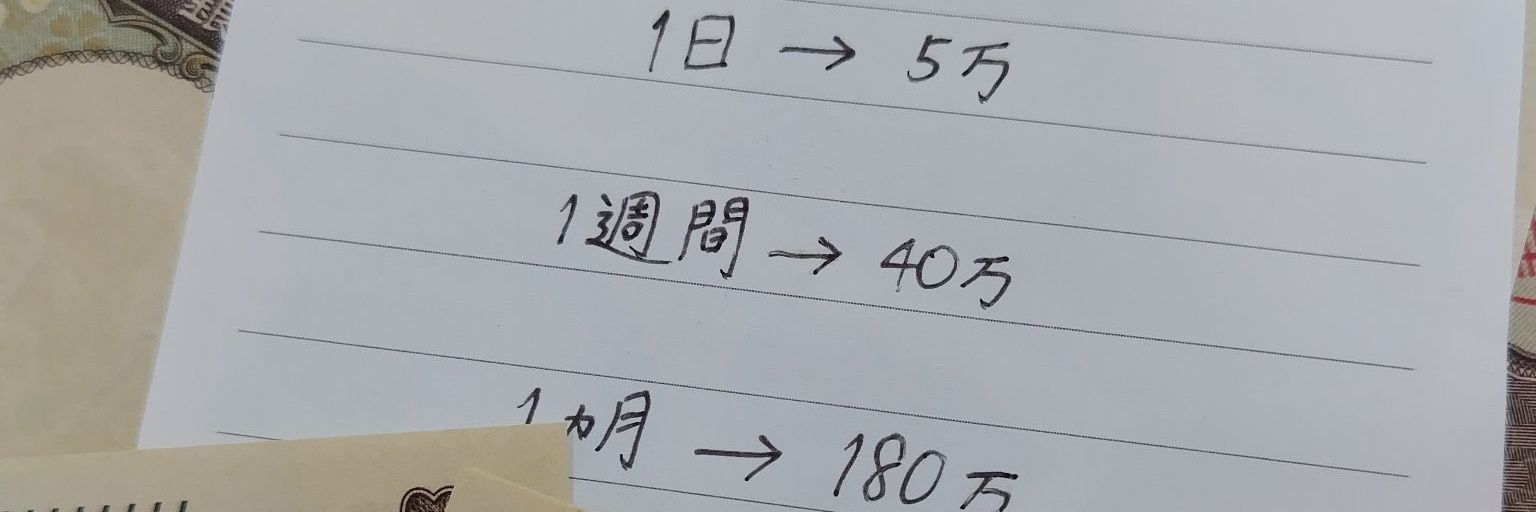 1日 → 5万
1週間 → 40万
1ヵ月 → 180万